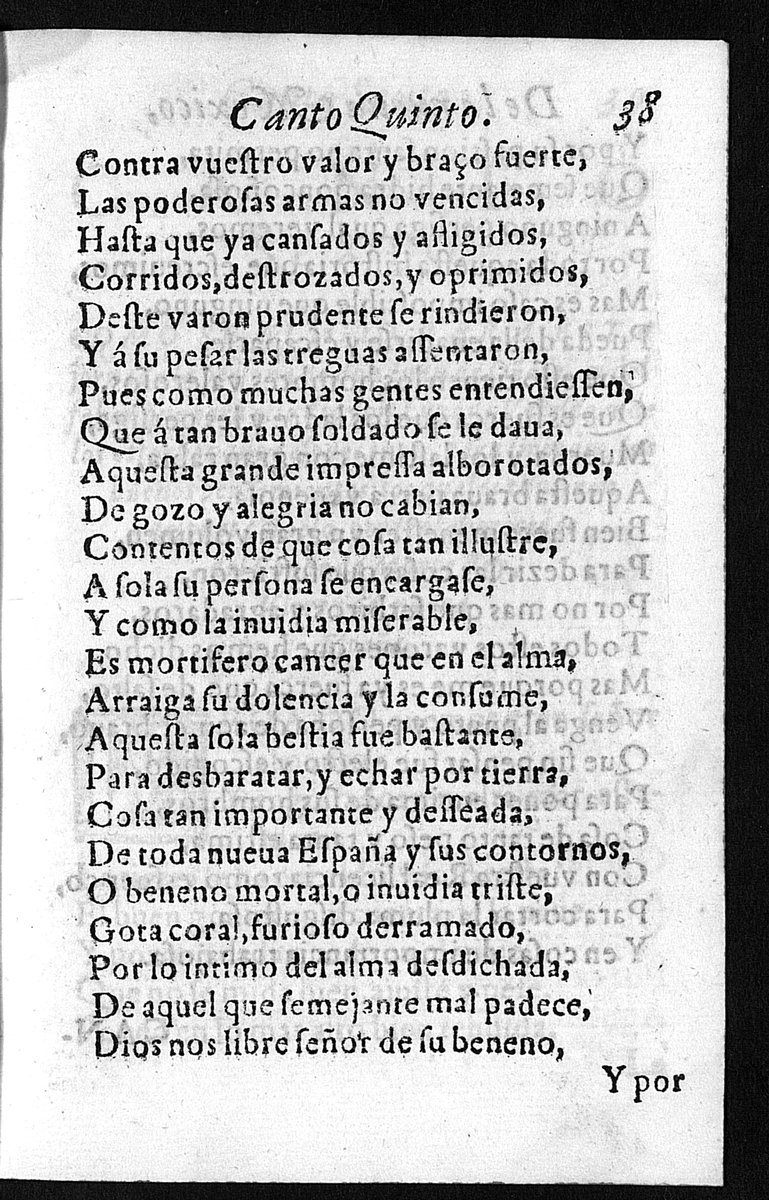 Canto Quinto. 38
Contra vueſtro valor y braço fuerte,
Las poderoſas armas no vencidas,
Haſta que ya canſados y afligidos,
Corridos,deſtrozados,y oprimidos,
Deſte varon prudente ſe rindieron,
Y á ſu peſar las treguas aſſentaron,
Pues como muchas gentes entendieſſen,
Que á tan brauo ſoldado ſe le daua,
Aqueſta grande impreſſa alborotados,
De gozo y alegria no cabian,
Contentos de que coſa tan illuſtre,
A ſola ſu perſona ſe encargaſe,
Y como la inuidia miſerable,
Es mortifero cancer que en el alma,
Arraiga ſu dolencia y la conſume,
Aqueſta ſola beſtia fue baſtante,
Para desbaratar,y echar por tierra,
Coſa tan importante y deſſeada,
De toda nueua Eſpaña y ſus contornos,
O beneno mortal,o inuidia triſte,
Gota coral,furioſo derramado,
Por lo intimo del alma deſdichada,
De aquel que ſemejante mal padece,
Dios nos libre ſeñor de ſu beneno,
Y por